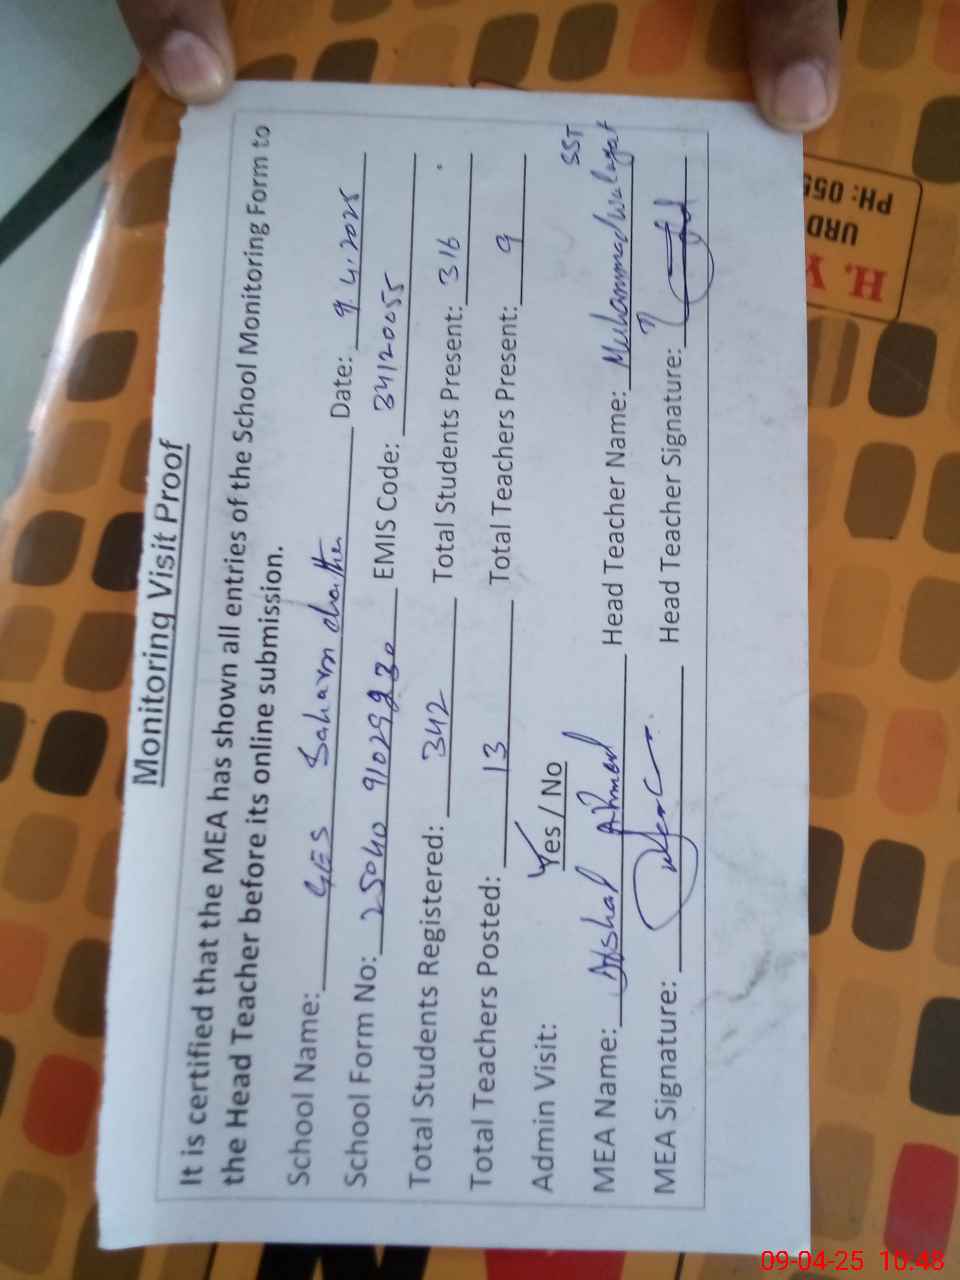 Monitoring Visit Proof
It is certified that the MEA has shown all entries of the School Monitoring Form to
the Head Teacher before its online submission.
School Name: GES Saharn chattha Date: 9.4.2025
School Form No: 25040 91029930 EMIS Code: 34120055
Total Students Registered: 342 Total Students Present: 316
Total Teachers Posted: 13 Total Teachers Present: 9
Admin Visit: Yes / No
SST
MEA Name: Ahmed Head Teacher Name: Muhammad
MEA Signature: Head Teacher Signature:
H. Y
URD
PH: 055
09-04-25 10:48